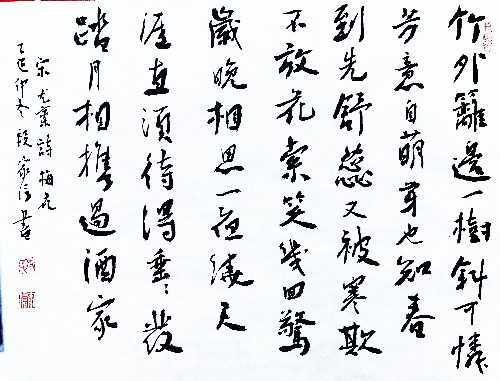 竹外籬邊一樹斜可憐
芳意自萌芽也知春
到先舒蕊又被寒欺
不放花索笑幾回驚
歲晚相思一夜繞天
涯直須待得垂〻發
踏月相攜過酒家
宋尤袤詩梅花
乙巳仲冬段家書